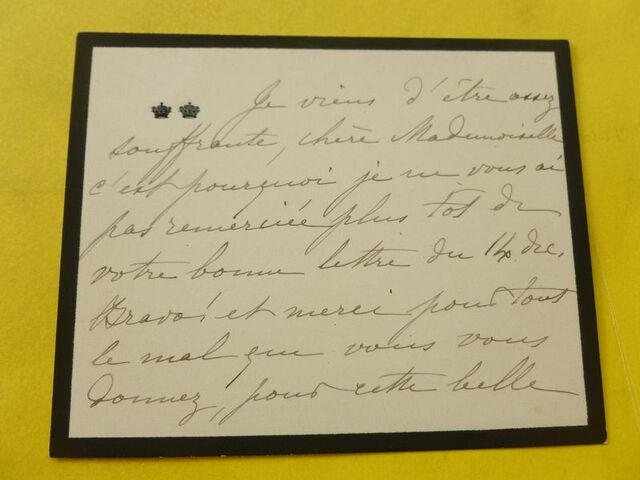 Je viens d'être assez
souffrante, chère Mademoiselle
c'est pourquoi je ne vous ai
pas remerciée plus tôt de
votre bonne lettre du 14 dec.
Bravo! et merci pour tout
le mal que vous vous
donnez, pour cette belle